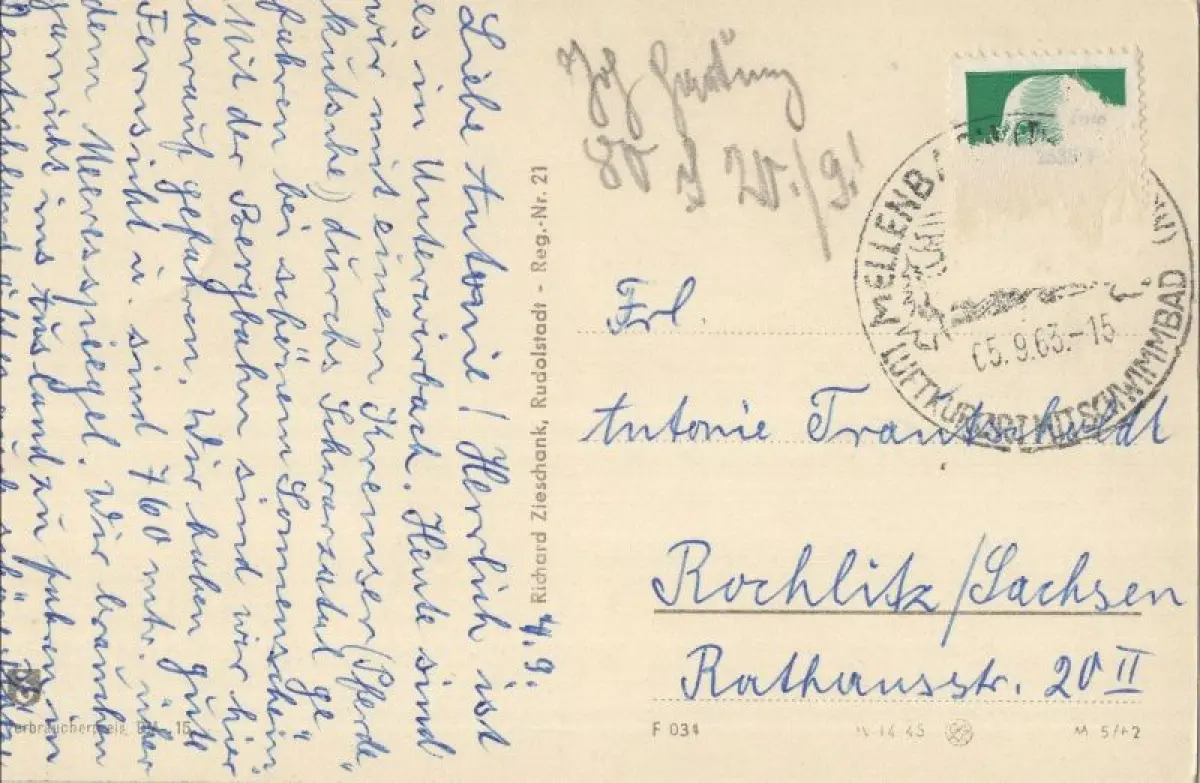 Liebe Antonie! Herrlich ist
es in Unterwirbach. Heute sind
wir mit einem Kremser (Pferde
kutsche) durchs Schwarzatal ge
fahren bei schönem Sonnenschein
Mit der Bergbahn sind wir hier
herauf gefahren. Wir haben gute
Fernsicht u. sind 760 mtr. über
dem Meeresspiegel. Wir brauchen
garnicht ins Ausland zu fahren in
ist
4.9.
Richard Zieschank, Rudolstadt - Reg.-Nr. 21
MELLENB
05.9.63.-15
LUFTKURORT MIT SCHWIMMBAD
Frl.
Antonie Trautscholdt
Rochlitz/Sachsen
Rathausstr. 20 II
F 034
M 5/62